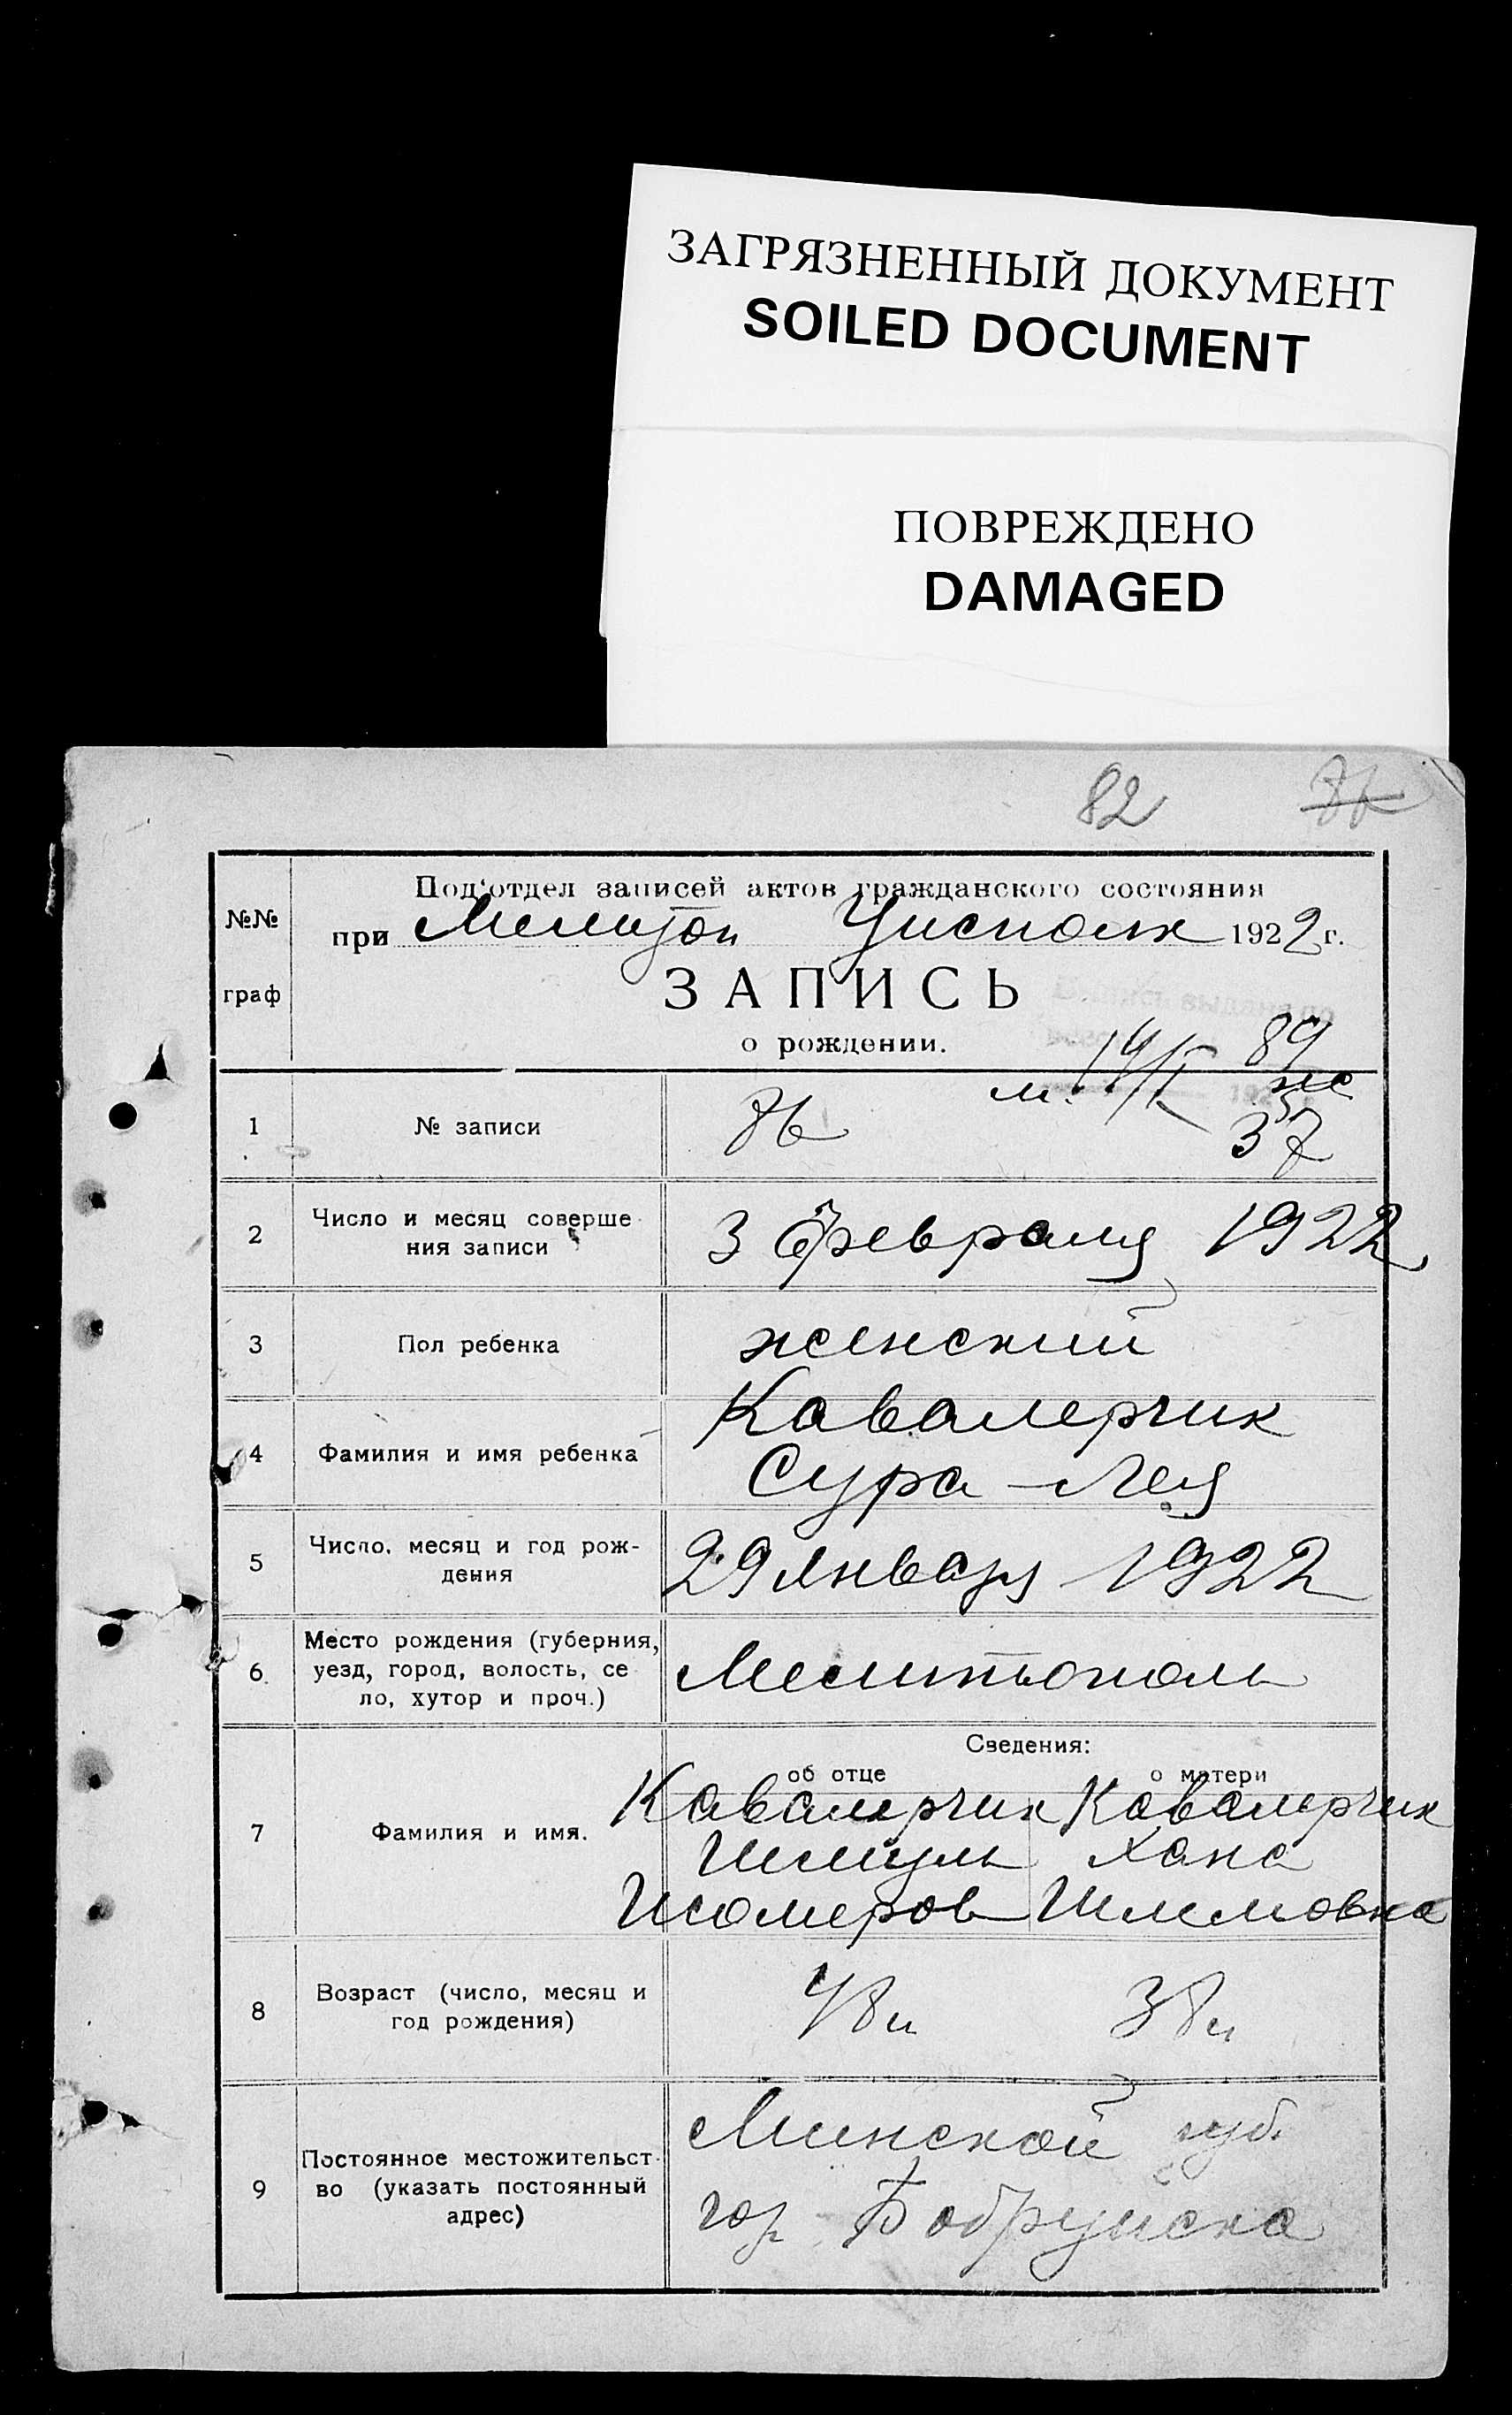 ЗАГРЯЗНЕННЫЙ ДОКУМЕНТ
SOILED DOCUMENT
ПОВРЕЖДЕНО
DAMAGED
82
76
№№
граф
Под'отдел записей актов гражданского состояния
при Мелитоп Уисполк 1922 г.
ЗАПИСЬ
о рождении.
1
№ записи
76
37
2
Число и месяц соверше-
ния записи
3 февраля 1922
3
Пол ребенка
женский
4
Фамилия и имя ребенка
Кавалерчик
Сура-Лея
5
Число, месяц и год рож-
дения
29 Января 1922
6
Место рождения (губерния,
уезд, город, волость, се
ло, хутор и проч.)
Мелитополь
Сведения:
об отце
о матери
7
Фамилия и имя.
Кавалерчик Кавалерчик
Шмуль Хана
Шлемовна
8
Возраст (число, месяц и
год рождения)
48 л 38 л
9
Постоянное местожительст-
во (указать постоянный
адрес)
Минской губ.
гор Бобруйска